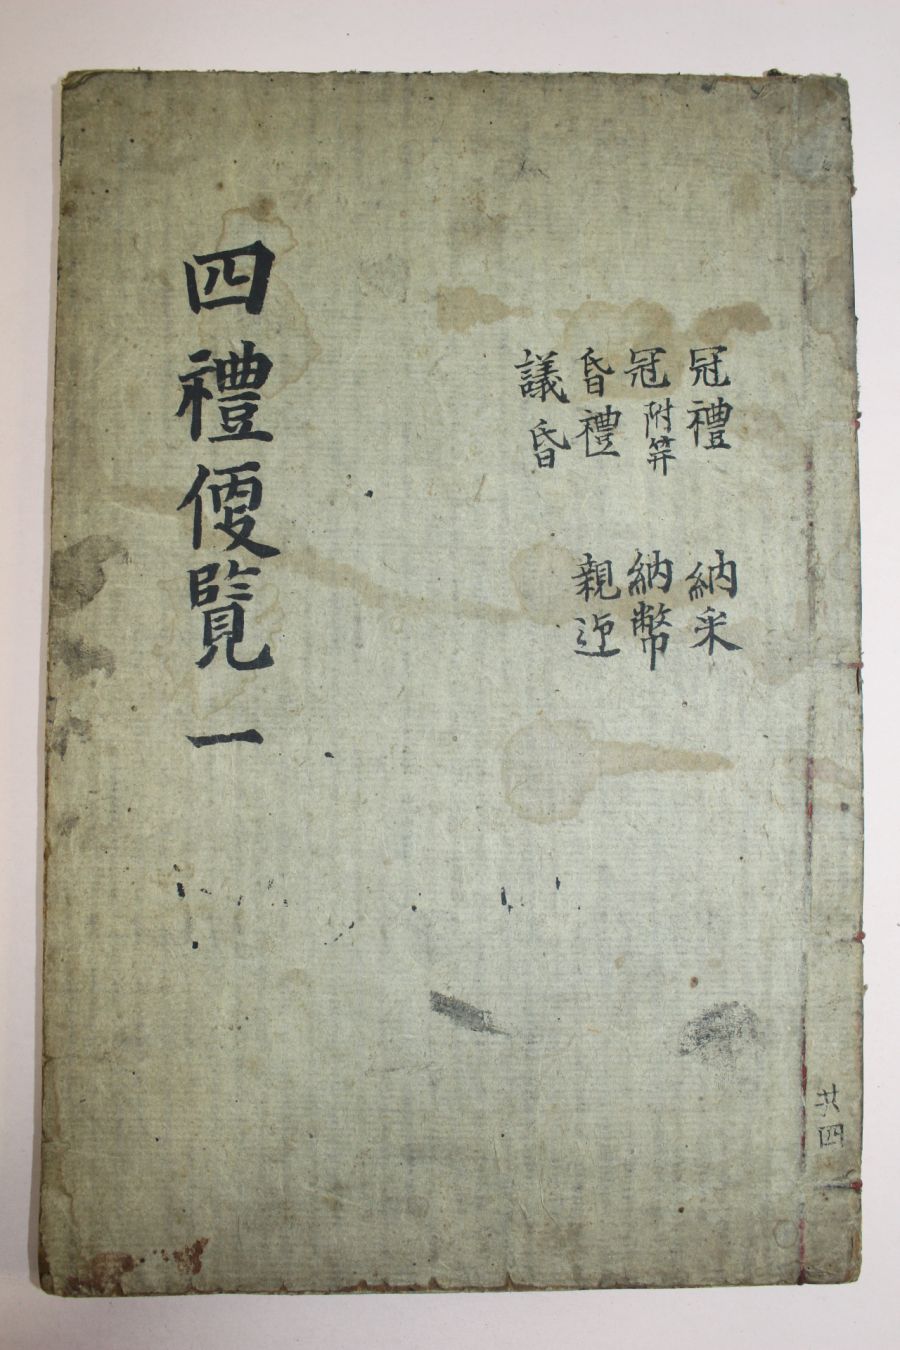 冠禮
冠 附笄
昏禮
議昏
納采
納幣
親迎
四禮便覽 一
共四